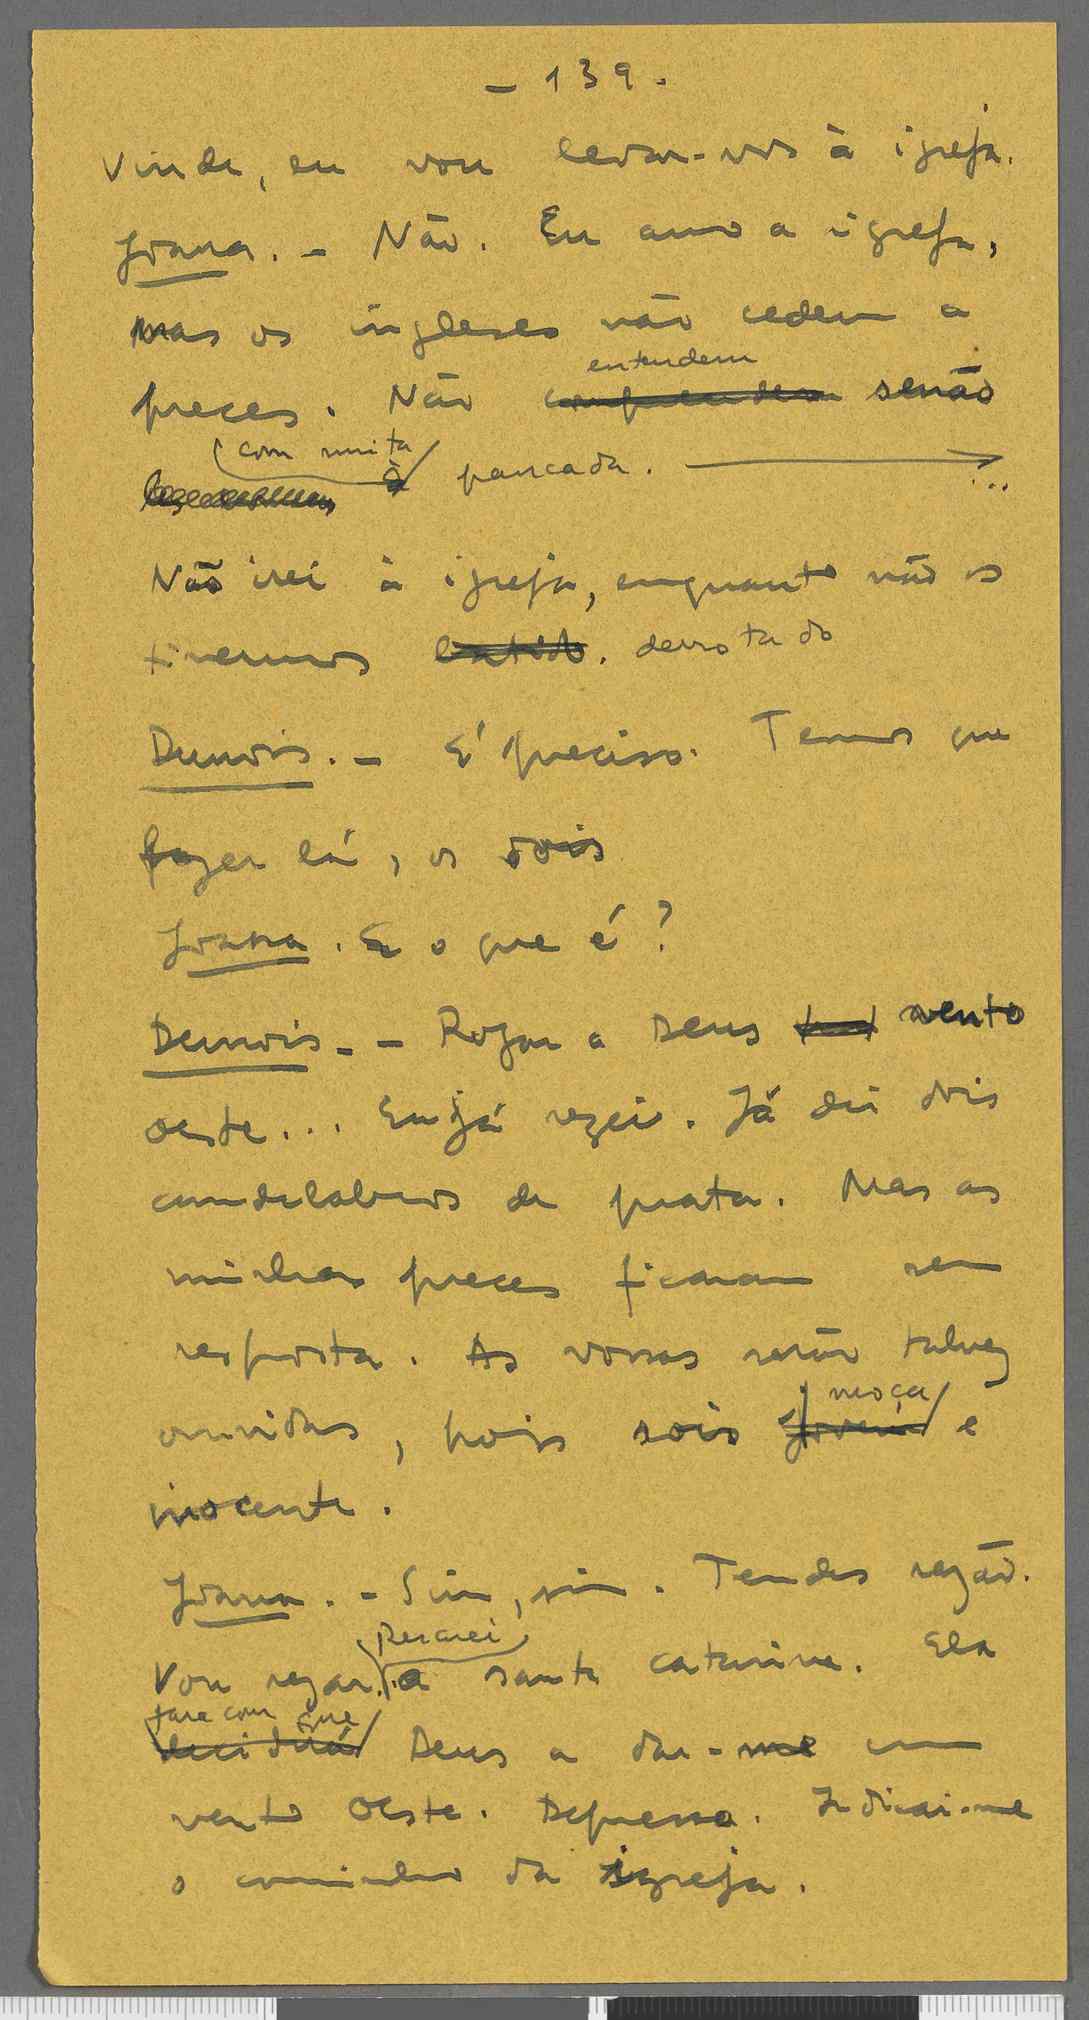 - 139.
Vinde, eu vou levar-vos à igreja.
Joana. - Não. Eu amo a igreja,
mas os ingleses não cedem a
entendem
preces. Não compreendem senão
com muita
à pancada.
Não irei à igreja, enquanto não os
tivermos batido. derrotado
Dunois. - É preciso. Temos que
fazer lá, os dois
Joana. E o que é?
Dunois. - Rogar a Deus vento
oeste... Eu já rezei. Já dei dois
candelabros de prata. Mas as
minhas preces ficaram sem
resposta. As vossas serão talvez
moça
ouvidas, pois sois jovem e
inocente.
Joana. - Sim, sim. Tendes razão.
Rezarei
Vou rezar. a santa catarina. Ela
fare com que
decidirá Deus a dar-me um
vento oeste. Depressa. Indicai-me
o caminho da igreja.